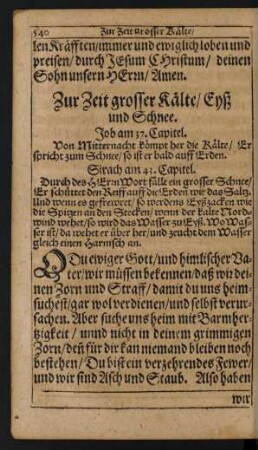 540 Zur Zeit grosser Kälte/
len Kräfften/immer und ewiglich loben und
preisen/durch JEsum CHristum/ deinen
Sohn unsern HErrn/Amen.
Zur Zeit grosser Kälte/Eyß
und Schnee.
Job am 37. Capitel.
Von Mitternacht kömpt her die Kälte/ Er
spricht zum Schnee/so ist er bald auff Erden.
Sirach am 43. Capitel.
Durch des HErrn Wort fället ein grosser Schnee/
Er schüttet den Reiff auff die Erden wie das Saltz.
Und wenn es gefrewret/so werdens Eyßzacken wie
die Spitzen an den Stecken/wenn der kalte Nord-
wind wehet/so wird das Wasser zu Eyß. Wo Was-
ser ist/da wehet er über her/und zeucht dem Wasser
gleich einen Harnisch an.
O Du ewiger Gott/und himlischer Va-
ter/wir müssen bekennen/daß wir dei-
nen Zorn und Straff/damit du uns heim-
suchest/gar wol verdienen/und selbst verur-
sachen. Aber suche uns heim mit Barmher-
tzigkeit / unnd nicht in deinem grimmigen
Zorn/deñ für dir kan niemand bleiben noch
bestehen/ Du bist ein verzehrendes Fewer/
und wir sind Asch und Staub. Also haben
wir